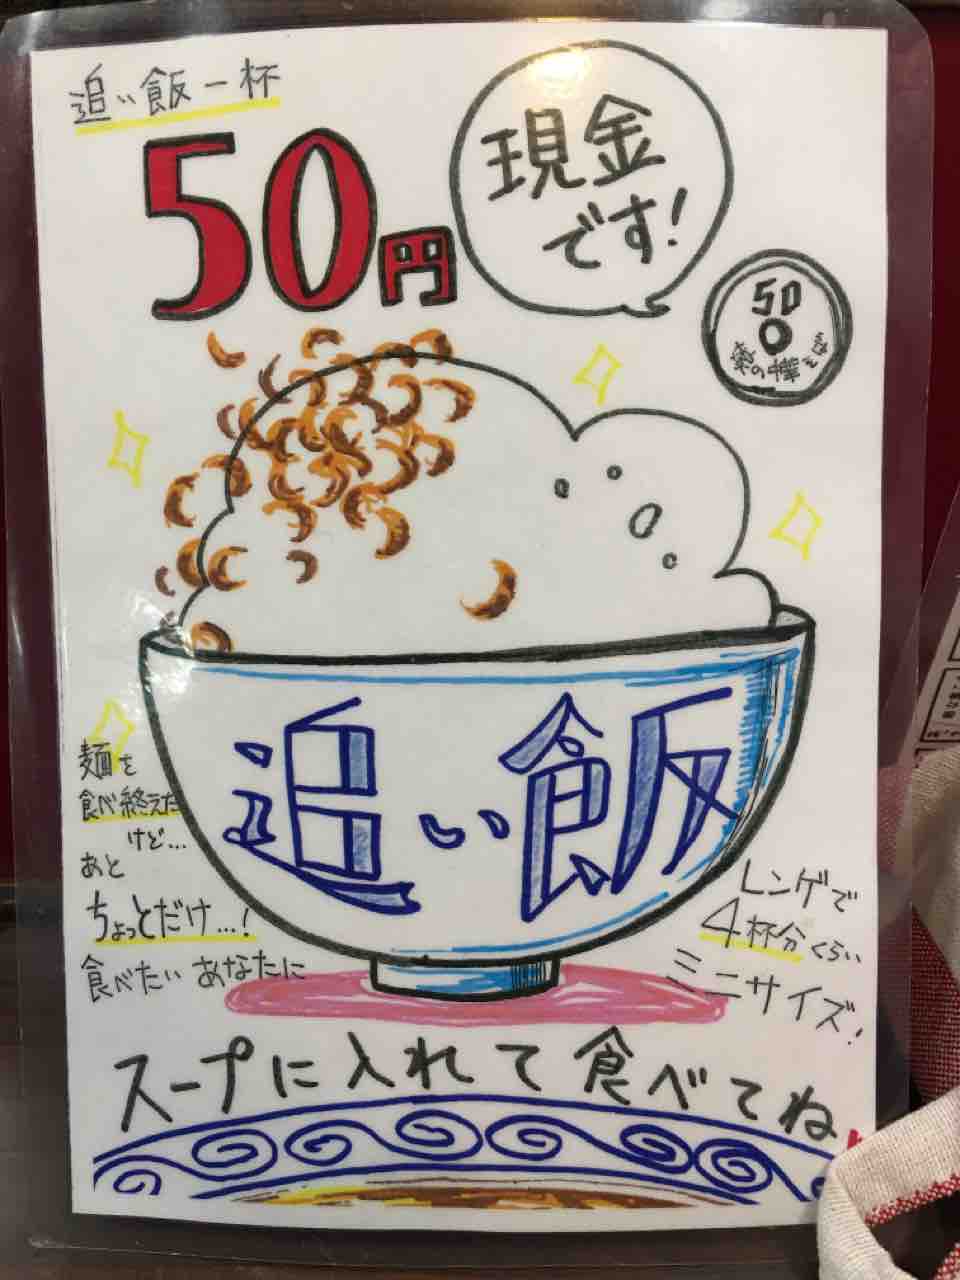 追い飯一杯
50円
現金
です!
50
追い飯
麺を
食べ終えた
けど…
あと
ちょっとだけ…!
食べたい あなたに
レンゲで
4杯分くらい
ミニサイズ!
スープに入れて食べてね!!